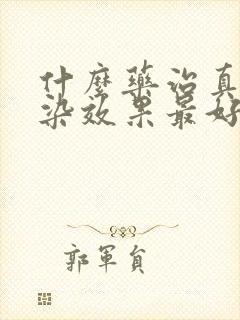 什麼藥治真
染效果最好
郭軍負